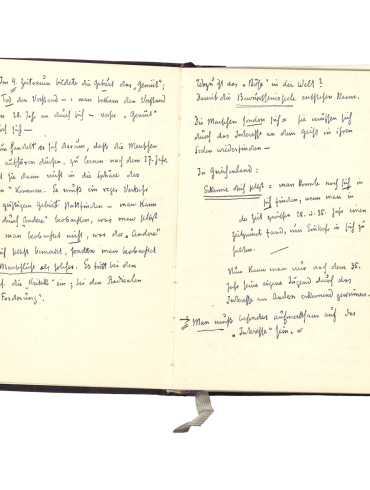 Im 4. Zeitraum bildete die Geburt das „Gemüt";
Tod den Verstand – : man bekam den Verstand
28. Jahr an durch sich – vorher „Gemüt"
durch sich –
handelt es sich darum, daß die Menschen
aufhören dürfen, zu lernen nach dem 27. Jahr.
sie dann nicht in die Sphäre des
" kommen. Es muß ein reger Verkehr
geistigem Gebiet stattfinden – man kann
durch „Andere" beobachten, was man selbst
man beobachtet nicht, was der „Andere"
sich selbst bemerkt, sondern man beobachtet
als solches. Es tritt bei den
die „Kritik" ein; bei den Radikalen
Forderung".
Wozu ist das „Böse" in der Welt?
Damit die Bewußtseinsseele entstehen kann.
Die Menschen sondern sich = Sie müssen sich
durch das Interesse an dem Geist in ihren
Seelen wiederfinden –
In Griechenland:
Erkenne dich selbst = man konnte noch sich in
sich finden, wenn man in
der Zeit zwischen 28. u. 35. Jahr einen
Zeitpunkt fand, um Einkehr in sich zu
halten. –
Nun kann man nur nach dem 35.
Jahr seine eigene Jugend durch das
Interesse an Andern erkennend gewinnen.
Man muß besonders aufmerksam auf das
„Interesse" sein. =